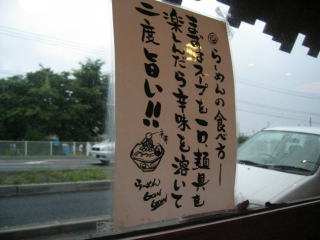 らーめんの食べ方
まずはスープを一口、麺具を
楽しんだら辛味を溶いて
二度旨い!!
らーめん